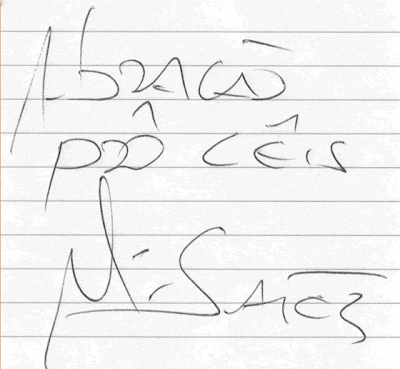 Abração
prô cêis
M. Saes